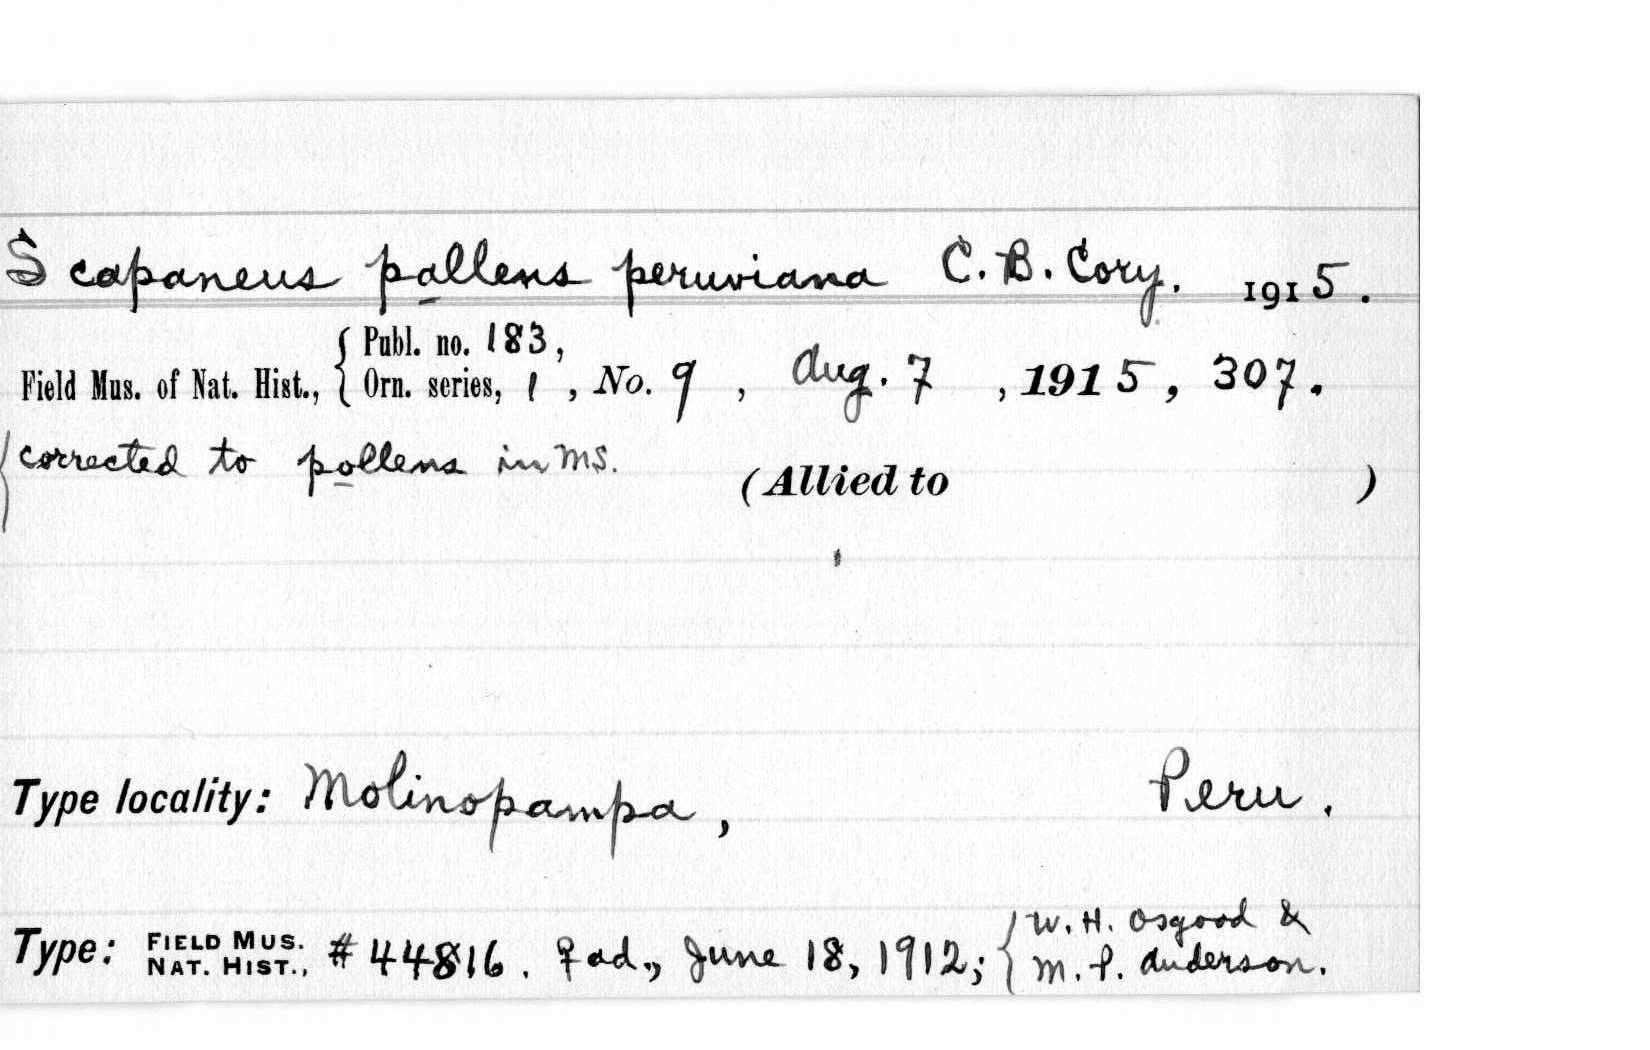 Scapaneus pallens peruviana C. B. Cory. 1915.
Field Mus. of Nat. Hist., { Publ. no. 183,
Orn. series, 1, No. 9, Aug. 7, 1915, 307.
{ corrected to pollens in MS.
(Allied to )
Type locality: Molinopampa, Peru.
Type: FIELD MUS. NAT. HIST., # 44816. ♀ ad., June 18, 1912; { W. H. Osgood &
M. P. Anderson.